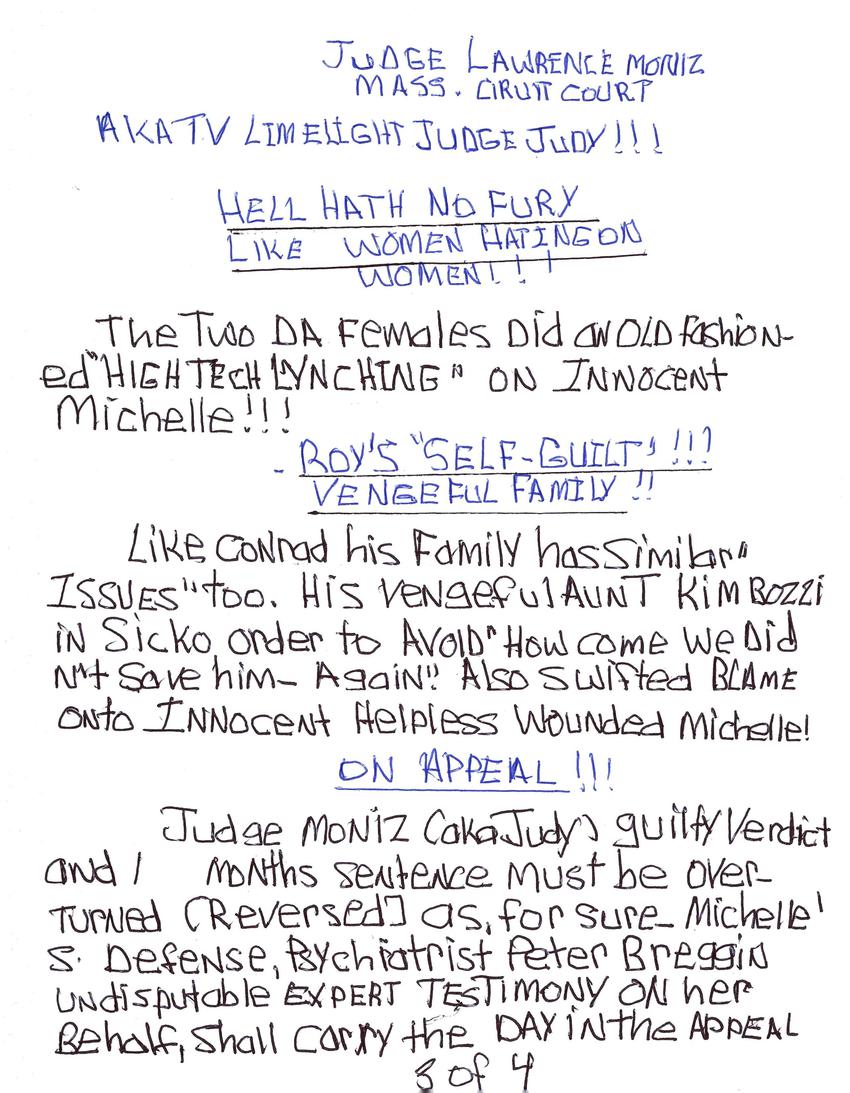 JUDGE LAWRENCE MONIZ
MASS. CIRUIT COURT
AKA TV LIMELIGHT JUDGE JUDY!!!
HELL HATH NO FURY
LIKE WOMEN HATING ON
WOMEN!!!
The Two DA Females Did an OLD fashion-
ed "HIGH TECH LYNCHING" ON INNOCENT
Michelle!!!
- ROY'S "SELF-GUILT" !!!
VENGEFUL FAMILY !!
Like CONrad his Family has Similar "
ISSUES" too. His vengeful AUNT Kim BOZZI
iN Sicko order to AVOID "How come We Did
N't Save him- Again"! Also swifted BLAME
ONto INNOCENT Helpless Wounded Michelle!
ON APPEAL !!!
Judge MONIZ (aka Judy) guilty Verdict
and 1 MONths sentence Must be over-
TURNED [Reversed] as, for sure- Michelle'
s. Defense, Psychiatrist Peter Breggin
UNdisputable EXPERT TESTIMONY ON her
Behalf, shall carry the DAY iN the APPEAL
3 of 4